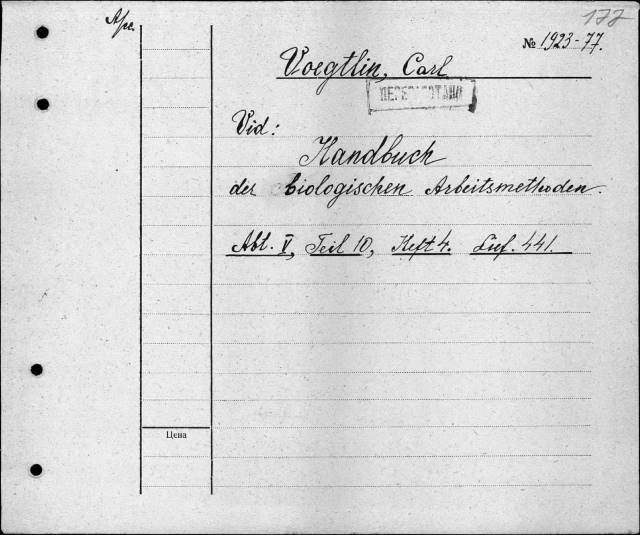 177
№ 1923-77.
Voegtlin, Carl
ПЕРЕРАБОТАНО
Vid:
Handbuch
der biologischen Arbeitsmethoden.
Abt. V, Teil 10, Heft 4. Lief. 441.
Цена